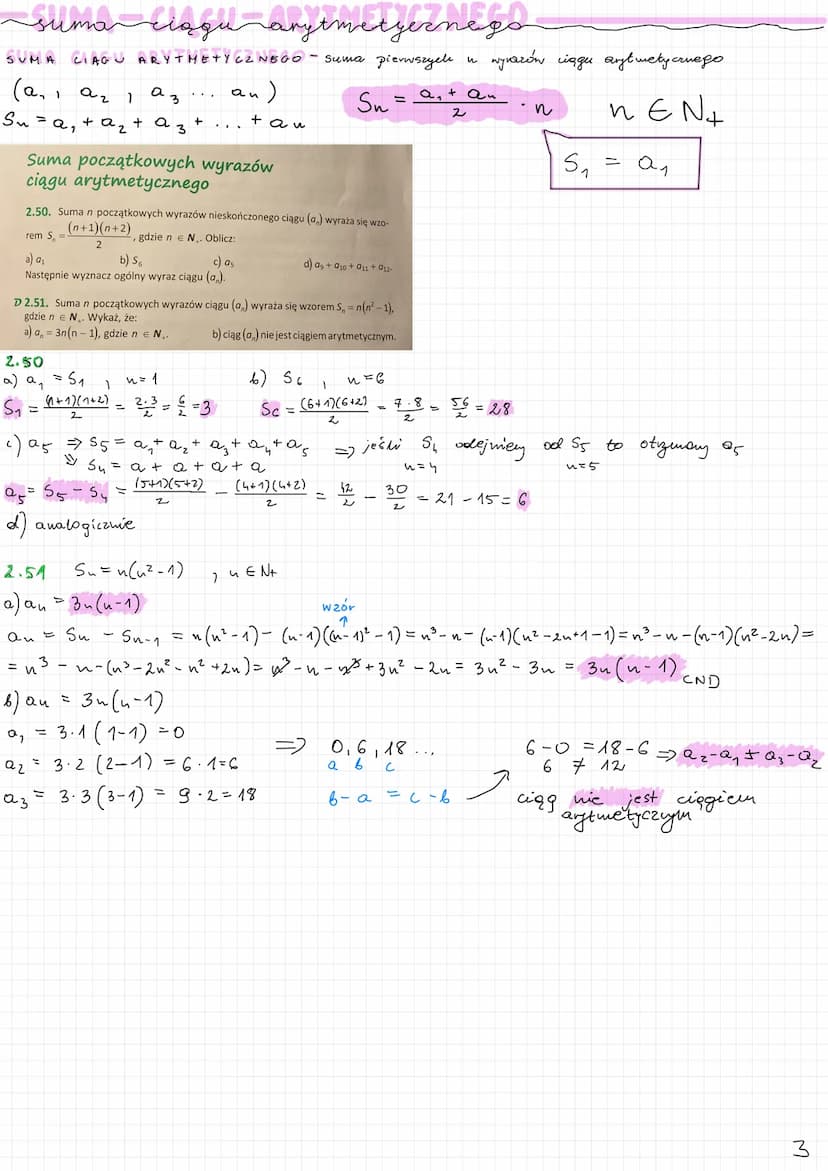 SUMA CIĄGU ARYTMETYCZNEGO
suma ciągu arytmetycznego
SUMA CIĄGU ARYTMETYCZNEGO - suma pierwszych n wyrazów ciągu arytmetycznego
(a₁, a₂, a₃ ... aₙ)
Sₙ = (a₁ + aₙ)/2 · n
n ∈ N₊
Sₙ = a₁ + a₂ + a₃ + ... + aₙ
S₁ = a₁
Suma początkowych wyrazów
ciągu arytmetycznego
2.50. Suma n początkowych wyrazów nieskończonego ciągu (aₙ) wyraża się wzo-
rem Sₙ = (n+1)(n+2)/2, gdzie n ∈ N₊. Oblicz:
a) a₁ b) S₆ c) a₅ d) a₉ + a₁₀ + a₁₁ + a₁₂.
Następnie wyznacz ogólny wyraz ciągu (aₙ).
D 2.51. Suma n początkowych wyrazów ciągu (aₙ) wyraża się wzorem Sₙ = n(n² – 1),
gdzie n ∈ N₊. Wykaż, że:
a) aₙ = 3n(n – 1), gdzie n ∈ N₊. b) ciąg (aₙ) nie jest ciągiem arytmetycznym.
2.50
a) a₁ = S₁ , n = 1 b) S₆ , n = 6
S₁ = (1+1)(1+2)/2 = 2·3/2 = 6/2 = 3 S₆ = (6+1)(6+2)/2 = 7·8/2 = 56/2 = 28
c) a₅ ⇒ S₅ = a₁ + a₂ + a₃ + a₄ + a₅ ⇒ jeśli S₄ odejmiemy od S₅ to otrzymamy a₅
⇓ S₄ = a + a + a + a n=4 n=5
a₅ = S₅ - S₄ = (5+1)(5+2)/2 - (4+1)(4+2)/2 = 42/2 - 30/2 = 21 - 15 = 6
d) analogicznie
2.51 Sₙ = n(n² - 1) , n ∈ N₊
a) aₙ = 3n(n-1)
wzór
↑
aₙ = Sₙ - Sₙ₋₁ = n(n² - 1) - (n-1)((n-1)² - 1) = n³ - n - (n-1)(n² - 2n + 1 - 1) = n³ - n - (n-1)(n² - 2n) =
= n³ - n - (n³ - 2n² - n² + 2n) = n³ - n - n³ + 3n² - 2n = 3n² - 3n = 3n(n-1) CND
b) aₙ = 3n(n-1)
a₁ = 3·1(1-1) = 0
a₂ = 3·2(2-1) = 6·1 = 6
a₃ = 3·3(3-1) = 9·2 = 18
⇒ 0, 6, 18 ...
a b c
b - a = c - b
6 - 0 = 18 - 6 ⇒ a₂ - a₁ ≠ a₃ - a₂
6 ≠ 12
ciąg nie jest ciągiem
arytmetycznym
3